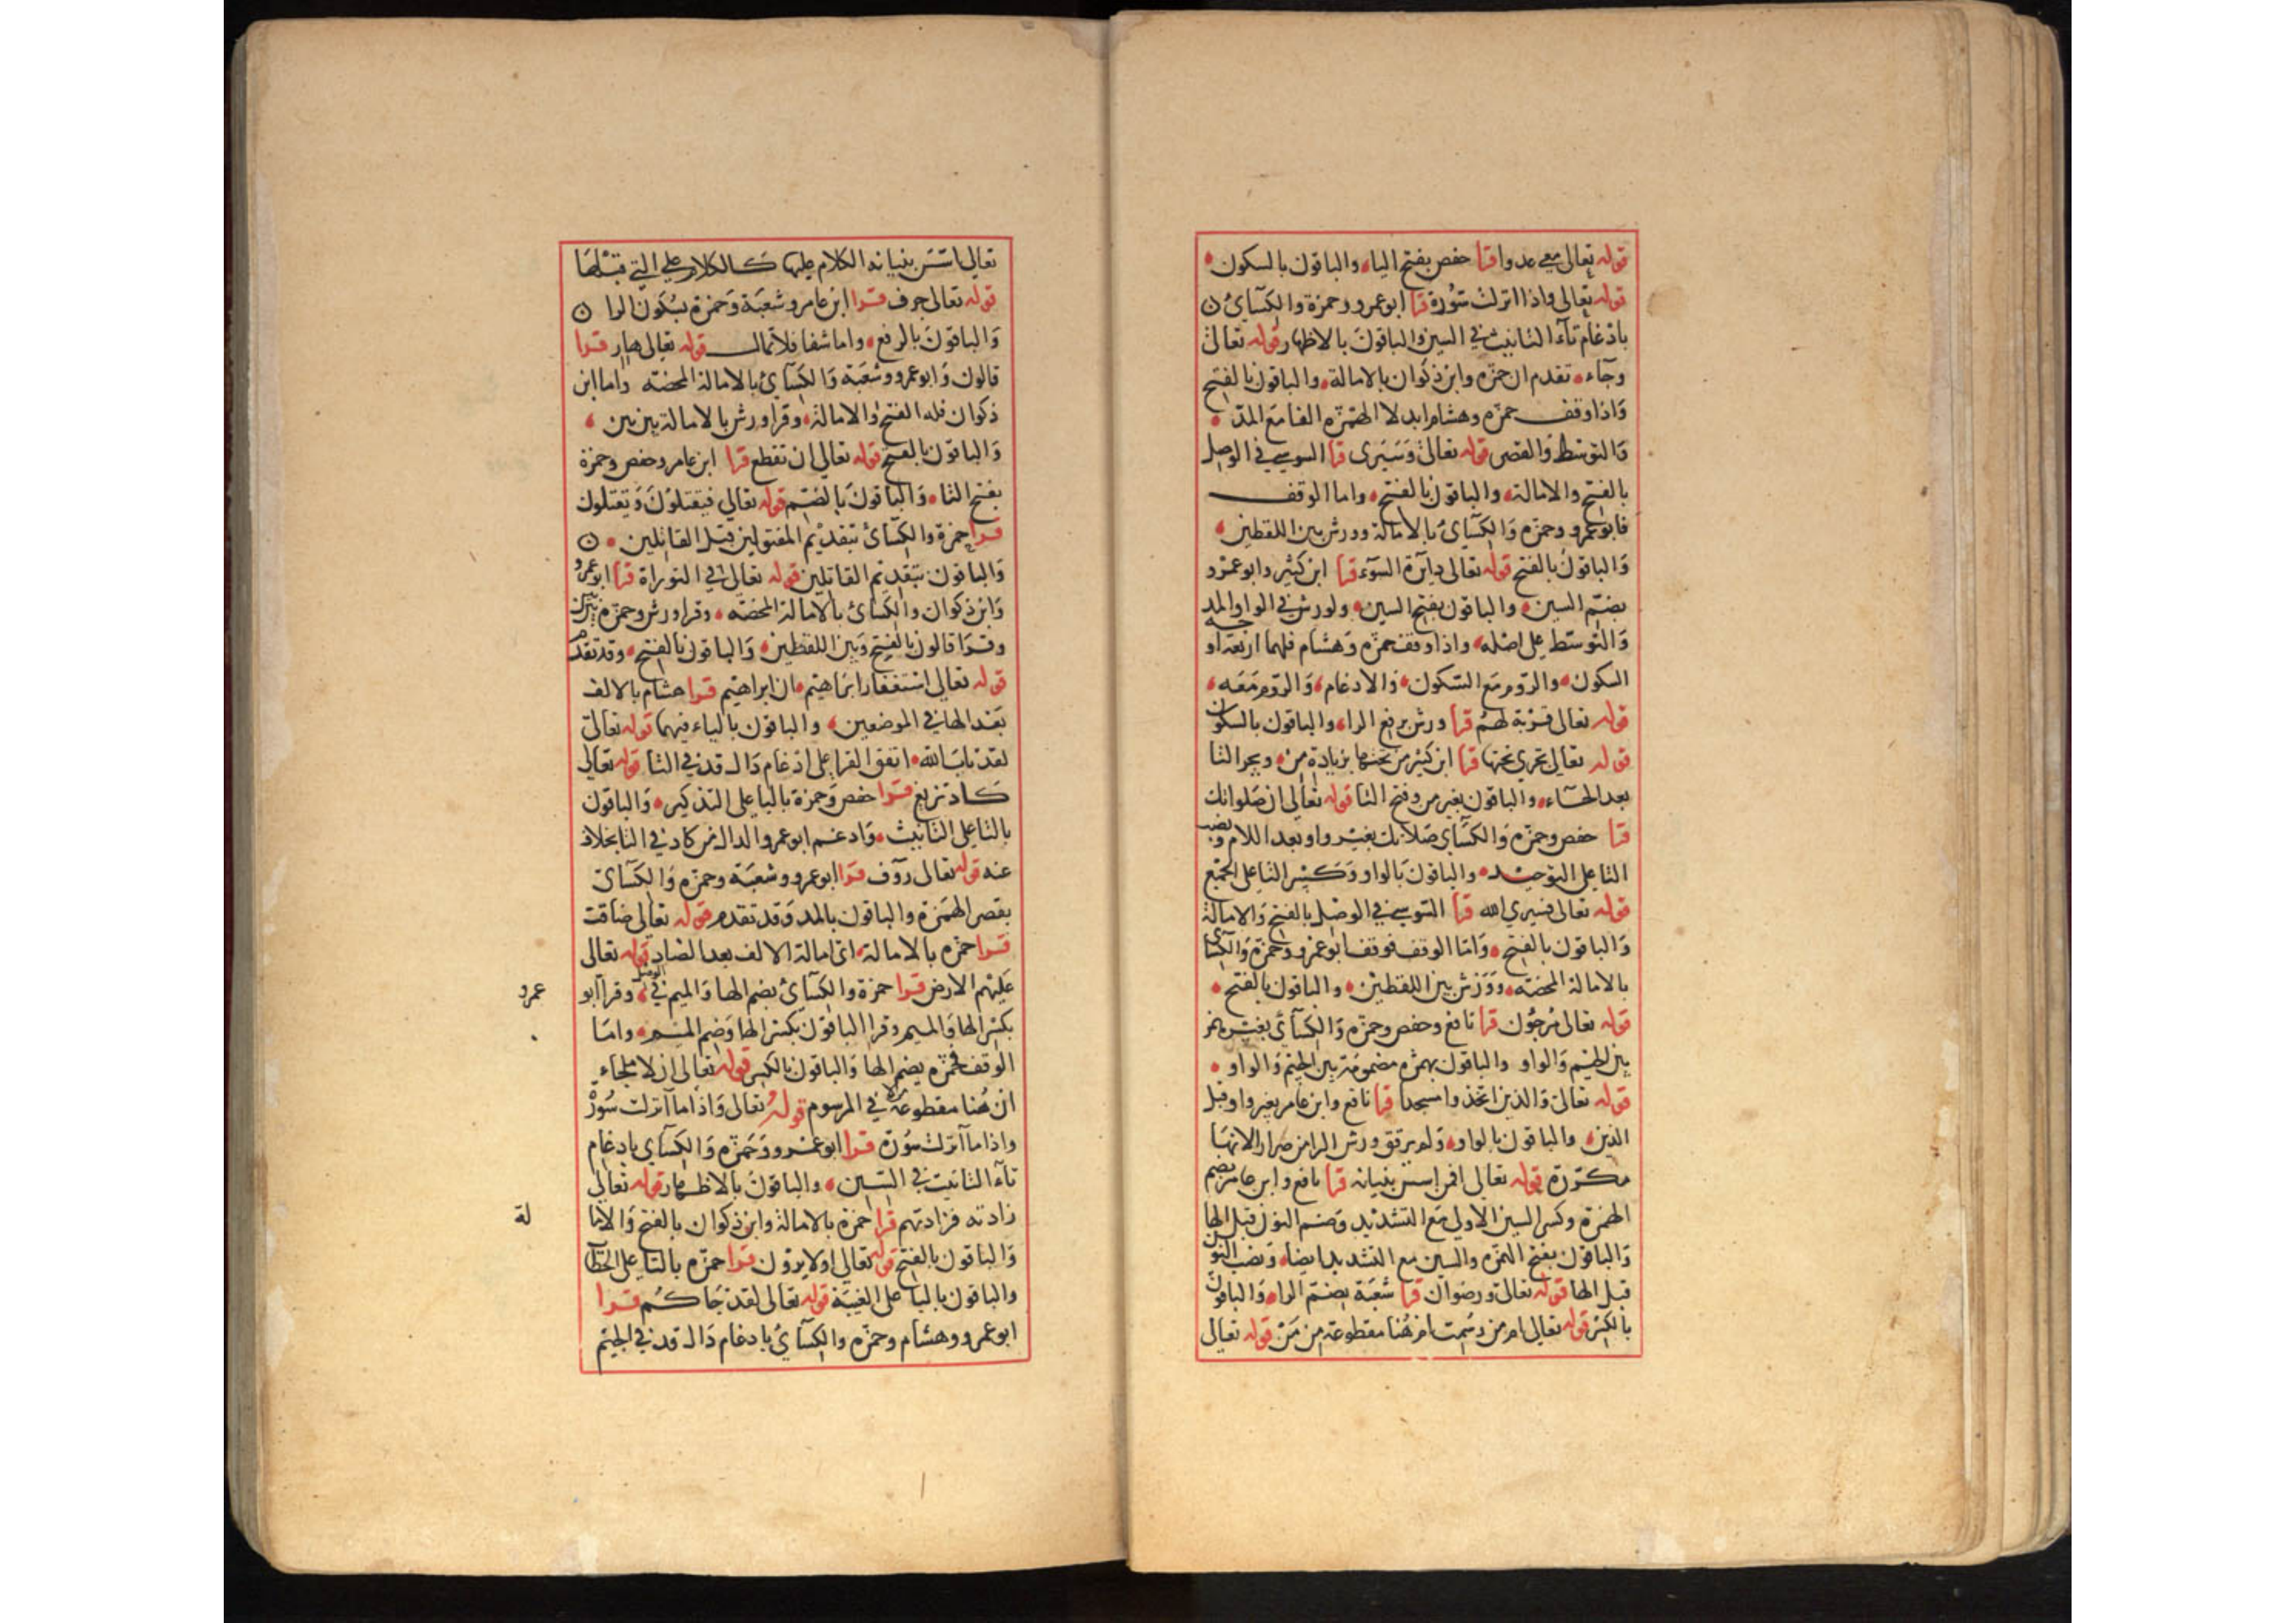 قوله تعالى معي عدوا قرا حفص بفتح الياء والباقون بالسكون
قوله تعالى واذا انزلت سورة قرا ابو عمرو وحمزة والكسائ
بادغام تاء التانيث في السين والباقون بالاظهار قوله تعالى
وجاء تقدم ان حمزه وابن ذكوان بالامالة والباقون بالفتح
واذا وقف حمزه وهشام ابدلا الهمزه الفا مع المد
والتوسط والقصر قوله تعالى وسيرى قرا السوسي في الوصل
بالفتح والامالة والباقون بالفتح واما الوقف
فابو عمرو وحمزه والكسائ بالامالة وورش بين اللفظين
والباقون بالفتح قوله تعالى دايرة السوء قرا ابن كثير وابو عمرو
بضم السين والباقون بفتح السين ولورش في الواو المد
والتوسط على اصله واذا وقف حمزه وهشام فلهما اربعة اوجه
السكون والروم مع السكون والادغام والروم معه
قوله تعالى قربة لهم قرا ورش برفع الراء والباقون بالسكون
قوله تعالى تجري تحتها قرا ابن كثير من تحتها بزيادة من ويجر التا
بعد الحاء والباقون بغير من وفتح التا قوله تعالى ان صلواتك
قرا حفص وحمزه والكسائ صلاتك بغير واو بعد اللام ونصب
التا على التوحيد والباقون بالواو وكسر التا على الجمع
قوله تعالى فسيري الله قرا السوسي في الوصل بالفتح والامالة
والباقون بالفتح واما الوقف فوقف ابو عمرو وحمزة والكسائ
بالامالة المحضه وورش بين اللفظين والباقون بالفتح
قوله تعالى مرجون قرا نافع وحفص وحمزه والكسائ بغير همز
بين الجيم والواو والباقون بهمزه مضمومة بين الجيم والواو
قوله تعالى والذين اتخذوا مسجدا قرا نافع وابن عامر بغير واو قبل
الذين والباقون بالواو ولم يرقق ورش الرا من ضرارا لانها
مكررة قوله تعالى افمن اسس بنيانه قرا نافع وابن عامر بضم
الهمزة وكسر السين الاولى مع التشديد وضم النون قبل الها
والباقون بفتح الهمزه والسين مع التشديد ايضا ونصب النون
قبل الها قوله تعالى ورضوان قرا شعبة بضم الراء والباقون
بالكسر قوله تعالى ام من رسمت ام هنا مقطوعة من من قوله تعالى
تعالى اسس بنيانه الكلام عليها كالكلام على التي قبلها
قوله تعالى جرف قرا ابن عامر وشعبة وحمزة بسكون الرا
والباقون بالرفع واما شفا فلا تمال قوله تعالى هار قرا
قالون وابو عمرو وشعبة والكسائ بالامالة المحضه واما ابن
ذكوان فله الفتح والامالة وقرا ورش بالامالة بين بين
والباقون بالفتح قوله تعالى ان تقطع قرا ابن عامر وحفص وحمزة
بفتح التاء والباقون بالضم قوله تعالى فيقتلون ويقتلون
قرا حمزة والكسائ بتقديم المفتولين قبل القاتلين
والباقون بتقديم القاتلين قوله تعالى في التوراة قرا ابو عمرو
وابن ذكوان والكسائ بالامالة المحضه وقرا ورش وحمزه بين بين
وقرا قالون بالفتح وبين اللفظين والباقون بالفتح وقد تقدم
قوله تعالى استغفار ابراهيم ان ابراهيم قرا هشام بالالف
بعد الها في الموضعين والباقون بالياء فيهما قوله تعالى
لقد تاب الله اتفق القرا على ادغام دال قد في التا قوله تعالى
كاد تزيغ قرا حفص وحمزة باليا على التذكير والباقون
بالتا على التانيث وادغم ابو عمرو الدال من كاد في التا بخلاف
عنه قوله تعالى روف قرا ابو عمرو وشعبة وحمزه والكسائ
بقصر الهمزه والباقون بالمد وقد تقدم قوله تعالى ضاقت
قرا حمزه بالامالة اي امالة الالف بعد الضاد قوله تعالى
عليهم الارض قرا حمزة والكسائ بضم الها والميم في الوصل وقرا ابو عمرو
بكسر الها والميم وقرا الباقون بكسر الها وضم الميم واما
الوقف فحمزه بضم الها والباقون بالكسر قوله تعالى ان لا ملجاء
ان هنا مقطوعة في المرسوم قوله تعالى واذا ما انزلت سورة
واذا ما انزلت سورة قرا ابو عمرو وحمزه والكسائ بادغام
تاء التانيث في السين والباقون بالاظهار قوله تعالى
زادته فزادتهم قرا حمزة بالامالة وابن ذكوان بالفتح والاما لة
والباقون بالفتح قوله تعالى اولا يرون قرا حمزه بالتا على الخطاب
والباقون باليا على الغيبة قوله تعالى لقد جاكم قرا
ابو عمرو وهشام وحمزه والكسائ بادغام دال قد في الجيم